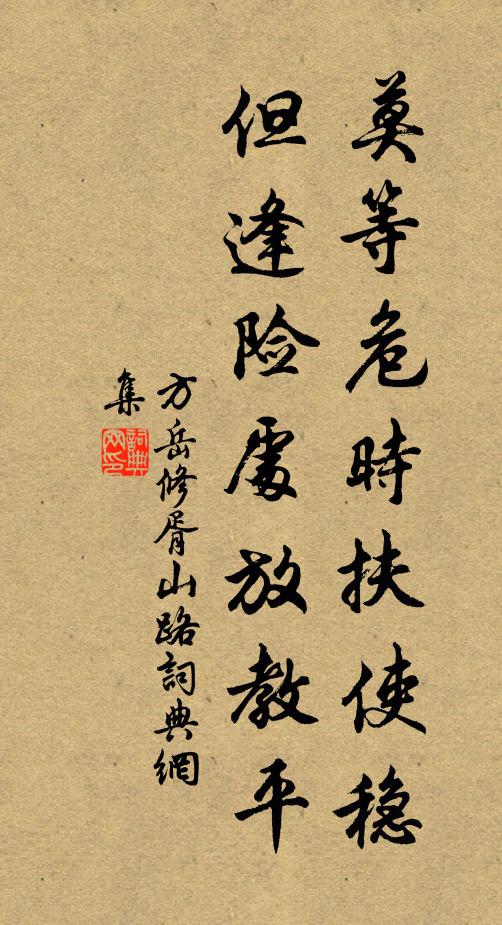 莫等危時扶使穩
但逢險處放教平
方岳修胥山路詞典網
集
詞典
网印